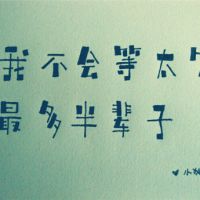 我不会等太
最多半辈子
小